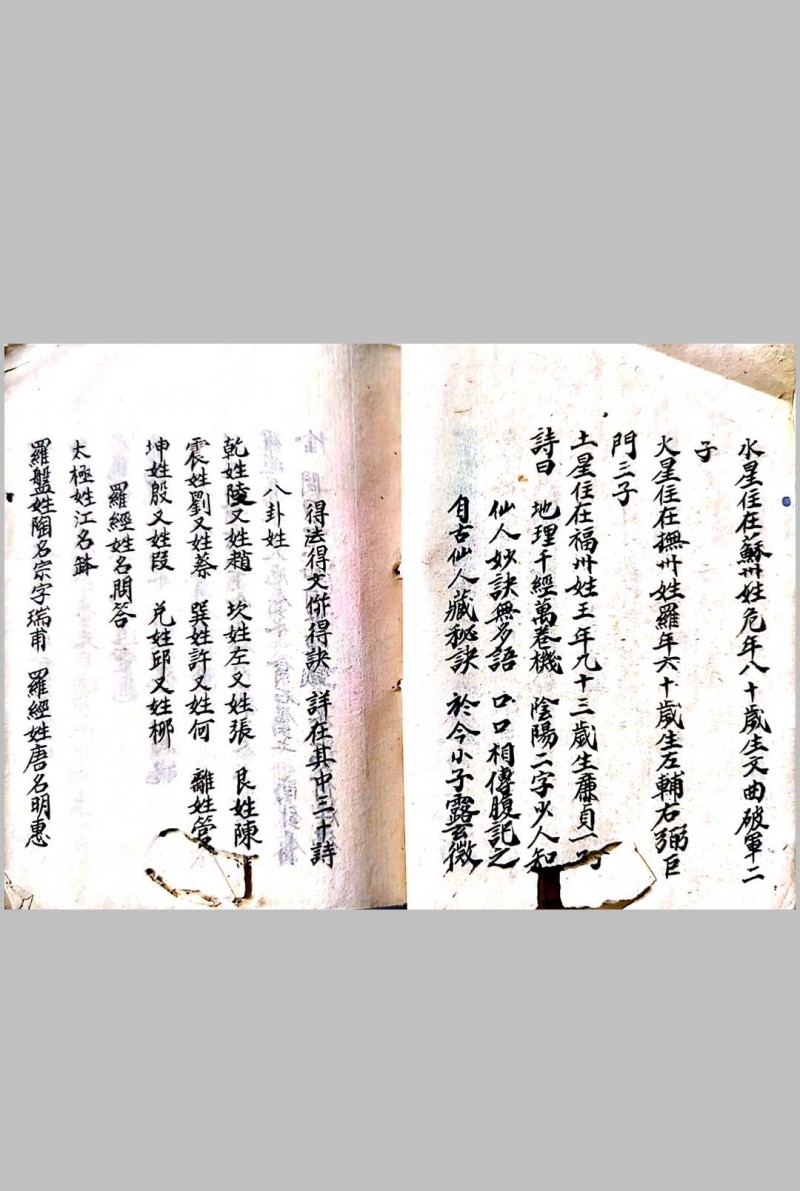 水星住在蘇州姓危年八十歲生文曲破軍二
子
火星住在撫州姓羅年六十歲生左輔右弼巨
門三子
土星住在福州姓王年九十三歲生廉貞一
詩曰 地理千經萬卷機 陰陽二字少人知
仙人妙訣無多語 口口相傳腹記之
自古仙人藏秘訣 於今小子露玄微
得法得文俻得訣 詳在其中三十詩
八卦姓
乾姓陵又姓趙 坎姓左又姓張 艮姓陳
震姓劉又姓蔡 巽姓許又姓何 離姓管
坤姓殷又姓段 兑姓邱又姓柳
羅經姓名問答
太極姓江名缽
羅盤姓陶名宗字瑞甫 羅經姓唐名明惠